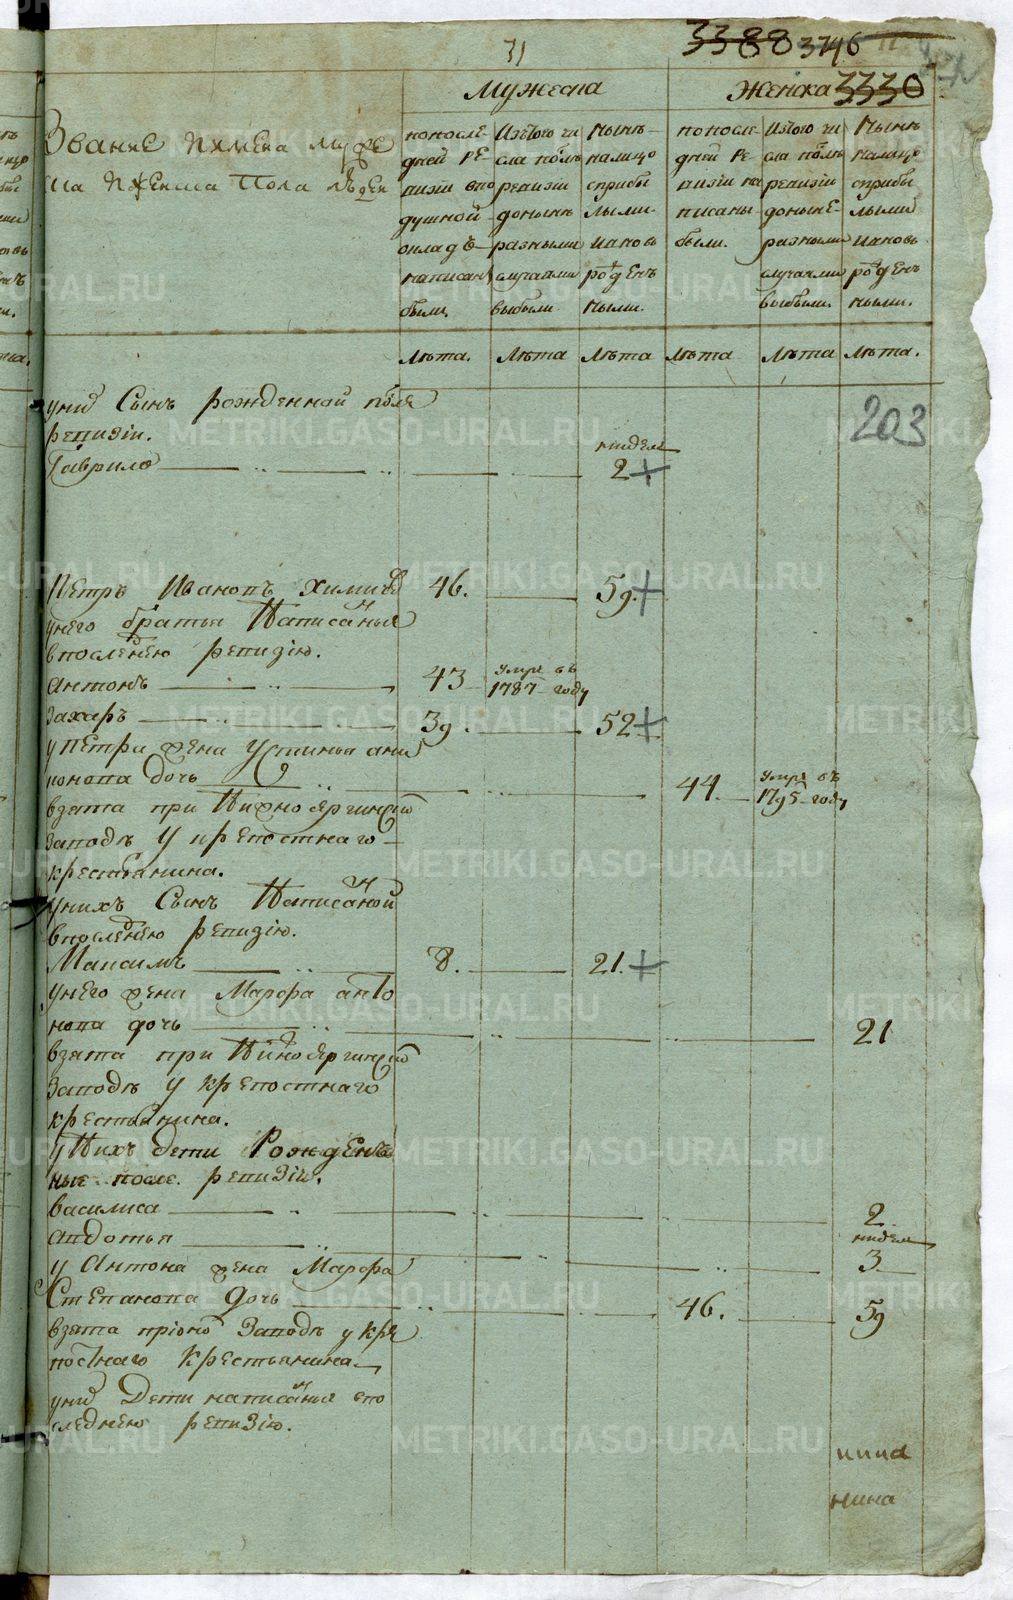 31
3388 3746
3330
Мужеска
Женска
Званiе и имена мужес
ка и женска пола людей
по последней ревизiи в подушной окладъ написаны были.
Изъ того числа после ревизiи до ныне разными случаями выбыли.
Ныне на лицо с прибылыми и вновь рожденными.
по последней ревизiи написаны были.
Изъ того числа после ревизiи до ныне разными случаями выбыли.
Ныне на лицо с прибылыми и вновь рожденными.
лѣта. лѣта лѣта лѣта лѣта лѣта.
203
у них Сынъ рожденной после
ревизiи.
Гаврило 2 недел
Петръ Ивановъ Химичев 46. 59.
у него братья Написанныя
в последнею ревизiю.
Антонъ 43 умре въ 1787 году
Захаръ 39. 52
у Петра жена Устинья анд
ронова дочь 44. умре въ 1795 году
взята при Нижносергинском
Заводѣ у крепостнаго
крестьянина.
у нихъ Сынъ Написанной
в последнею ревизiю.
Максимъ 8. 21.
у него жена Марфа анто
нова дочь 21
взята при Нижносергинском
Заводѣ у крепостнаго
крестьянина.
у Нихъ дети Рожден
ные после ревизiи.
василиса 2
авдотья недел 3
у Антона жена Марфа
Степанова дочь 46. 59
взята при оном Заводѣ у кре
постнаго крестьянина
у них Дети написанныя в по
следнею ревизiю.
METRIKI.GASO-URAL.RU